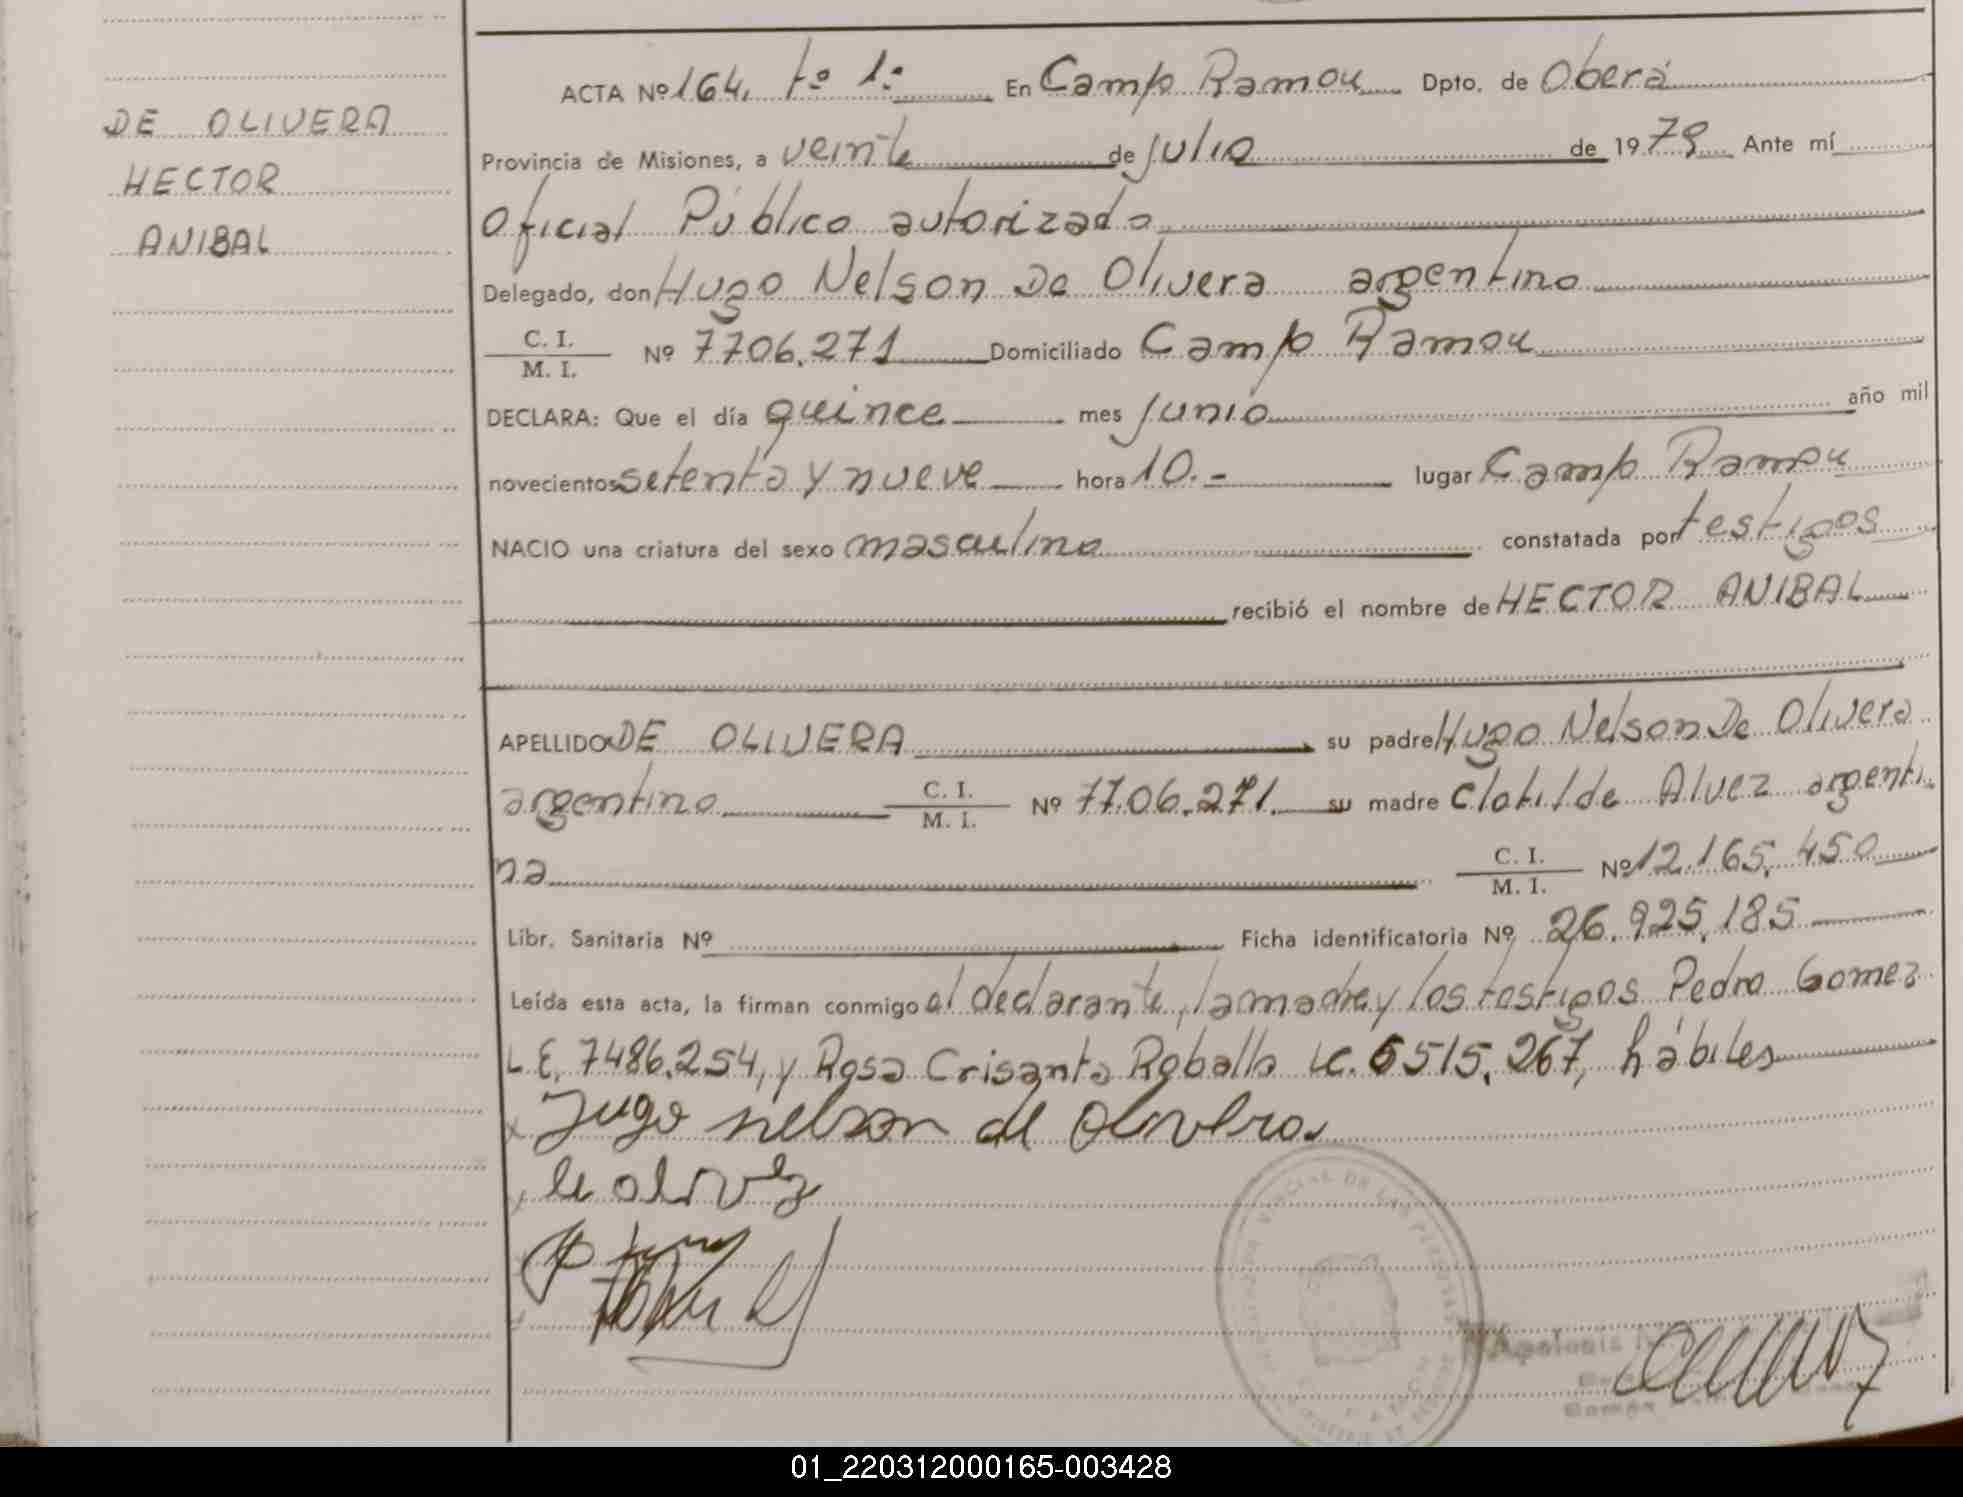 DE OLIVERA
HECTOR
ANIBAL
ACTA Nº 164. tº 1º En Camp Ramou Dpto. de Oberá
Provincia de Misiones, a veinte de julio de 1979 Ante mí
Oficial Público autorizado
Delegado, don Hugo Nelson De Olivera argentino
C. I.
M. I. Nº 7706.271 Domiciliado Camp Ramou
DECLARA: Que el día quince mes junio año mil
novecientos setenta y nueve hora 10.- lugar Camp Ramou
NACIO una criatura del sexo masculino constatada por testigos
recibió el nombre de HECTOR ANIBAL
APELLIDO DE OLIVERA su padre Hugo Nelson De Olivera
argentino C. I.
M. I. Nº 7706.271. su madre Clotilde Alvez argenti
na C. I.
M. I. Nº 12.165.450
Libr. Sanitaria Nº Ficha identificatoria Nº 26.925.185
Leída esta acta, la firman conmigo el declarante, la madre y los testigos Pedro Gomez
L.E. 7486.254, y Rosa Crisanta Roballo LC. 5515.267, hábiles
x Jugo nelson de olivera
01_220312000165-003428